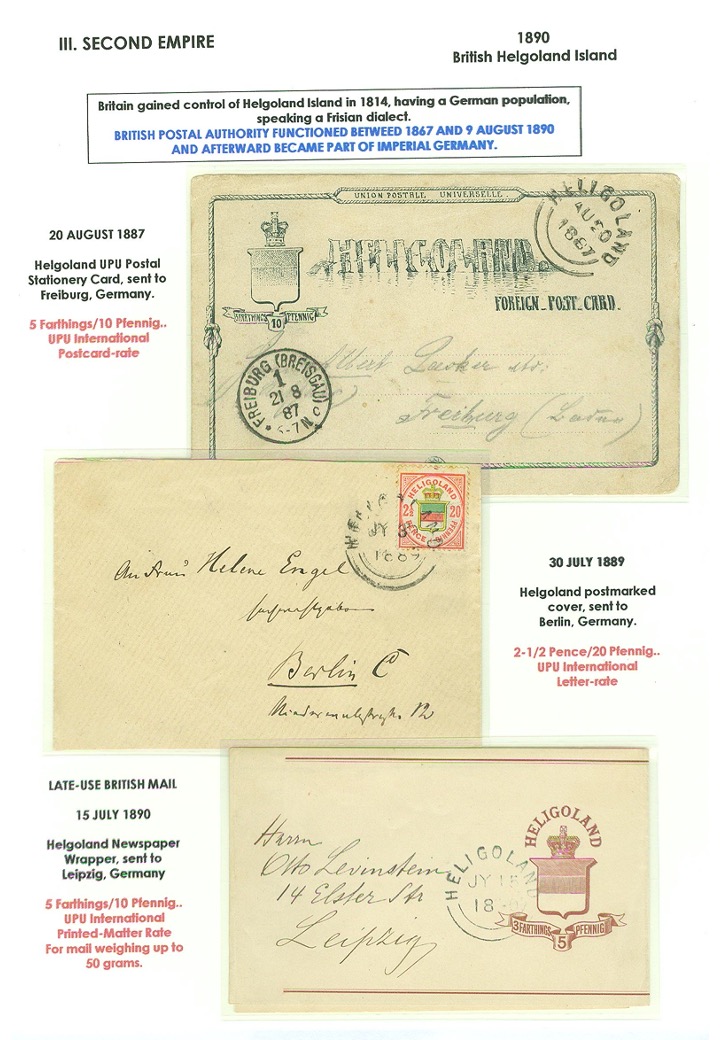 III. SECOND EMPIRE
1890
British Helgoland Island
Britain gained control of Helgoland Island in 1814, having a German population,
speaking a Frisian dialect.
BRITISH POSTAL AUTHORITY FUNCTIONED BETWEED 1867 AND 9 AUGUST 1890
AND AFTERWARD BECAME PART OF IMPERIAL GERMANY.
20 AUGUST 1887
Helgoland UPU Postal
Stationery Card, sent to
Freiburg, Germany.
5 Farthings/10 Pfennig..
UPU International
Postcard-rate
UNION POSTALE UNIVERSELLE
HELIGOLAND
AU 20
1887
HELIGOLAND
FOREIGN POST CARD.
5 FARTHINGS 10 PFENNIG
Albert
Freiburg (Baden)
FREIBURG (BREISGAU)
1
21 8
87
HELIGOLAND
2½ 20
PENCE PFENNIG
HELIGOLAND
JY
1889
Helene Engel
Berlin C
12
30 JULY 1889
Helgoland postmarked
cover, sent to
Berlin, Germany.
2-1/2 Pence/20 Pfennig..
UPU International
Letter-rate
LATE-USE BRITISH MAIL
15 JULY 1890
Helgoland Newspaper
Wrapper, sent to
Leipzig, Germany
5 Farthings/10 Pfennig..
UPU International
Printed-Matter Rate
For mail weighing up to
50 grams.
HELIGOLAND
3 FARTHINGS 5 PFENNIG
HELIGOLAND
JY 15
18
Herrn
Otto Levinstein
14 Elster Str
Leipzig